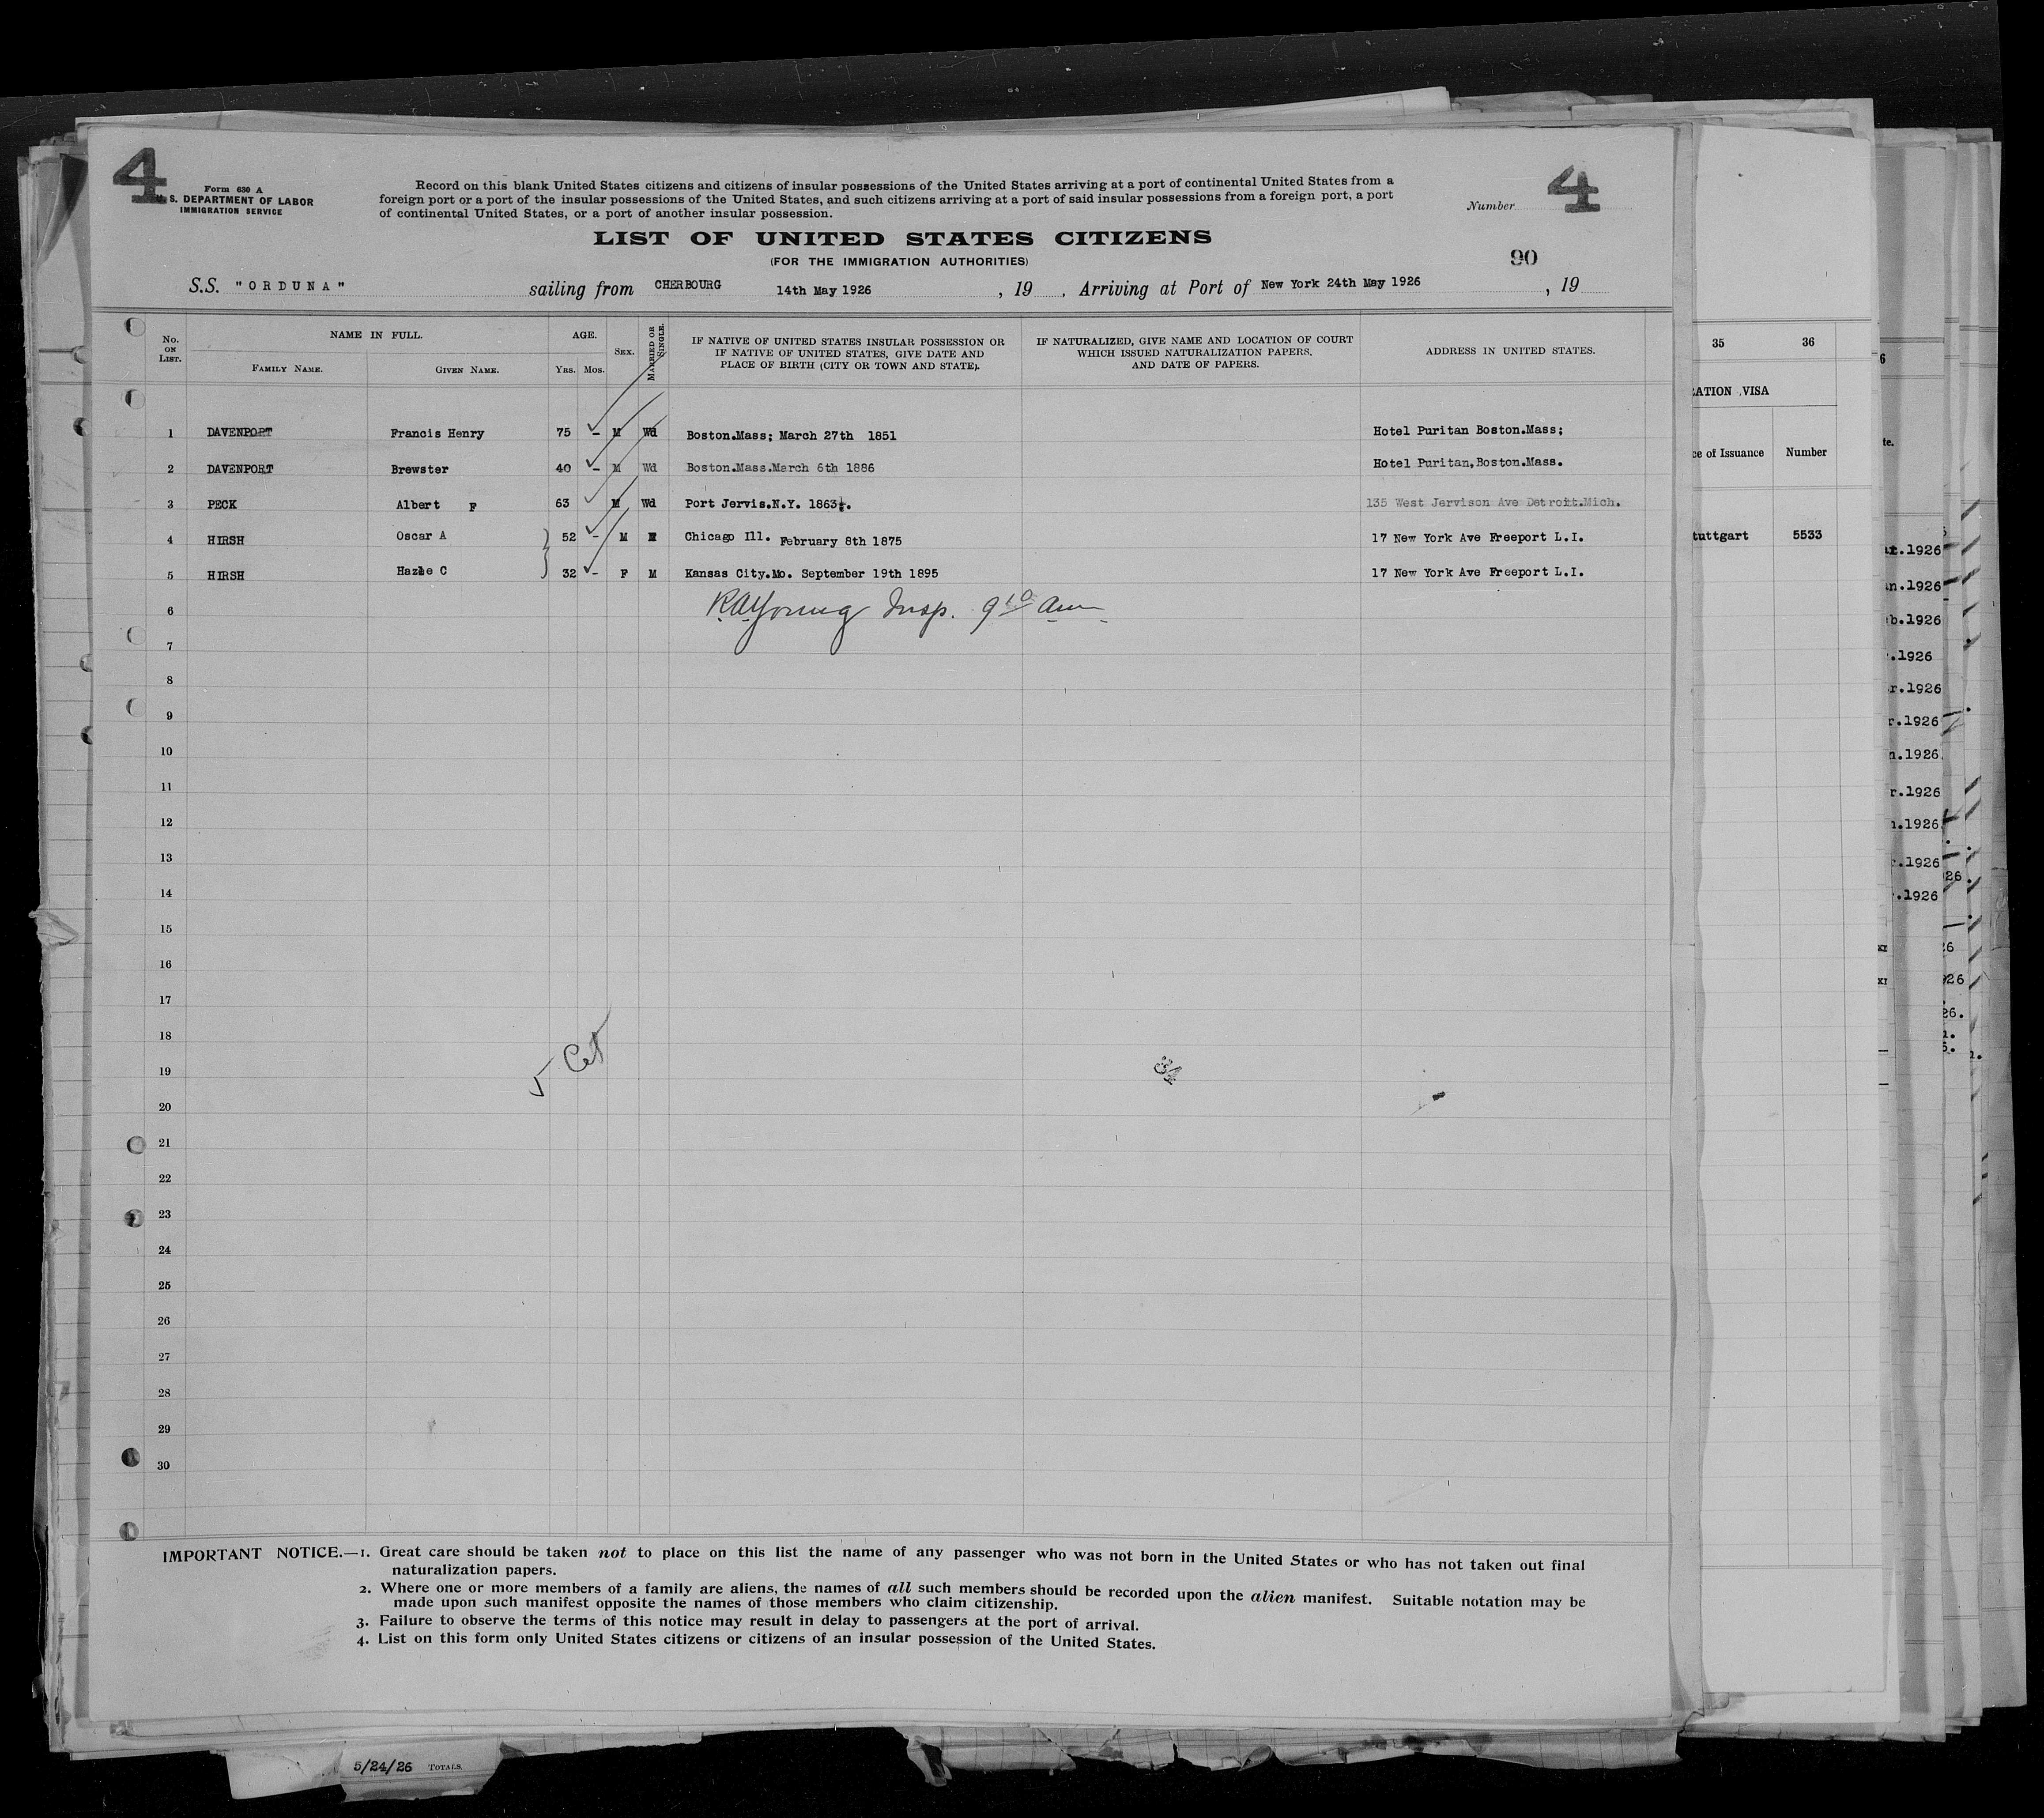 4
Form 630 A
U. S. DEPARTMENT OF LABOR
IMMIGRATION SERVICE
Record on this blank United States citizens and citizens of insular possessions of the United States arriving at a port of continental United States from a
foreign port or a port of the insular possessions of the United States, and such citizens arriving at a port of said insular possessions from a foreign port, a port
of continental United States, or a port of another insular possession.
Number 4
LIST OF UNITED STATES CITIZENS
(FOR THE IMMIGRATION AUTHORITIES)
90
S.S. "ORDUNA" sailing from CHERBOURG 14th May 1926, 19, Arriving at Port of New York 24th May 1926, 19
No. ON LIST. NAME IN FULL. FAMILY NAME. GIVEN NAME. AGE. YRS. MOS. SEX. MARRIED OR SINGLE. IF NATIVE OF UNITED STATES INSULAR POSSESSION OR IF NATIVE OF UNITED STATES, GIVE DATE AND PLACE OF BIRTH (CITY OR TOWN AND STATE). IF NATURALIZED, GIVE NAME AND LOCATION OF COURT WHICH ISSUED NATURALIZATION PAPERS, AND DATE OF PAPERS. ADDRESS IN UNITED STATES.
1 DAVENPORT Francis Henry 75 - M Wd Boston.Mass; March 27th 1851 Hotel Puritan Boston.Mass;
2 DAVENPORT Brewster 40 - M Wd Boston.Mass.March 6th 1886 Hotel Puritan,Boston.Mass.
3 PECK Albert F 63 M Wd Port Jervis.N.Y. 1863. 135 West Jervison Ave Detroit.Mich.
4 HIRSH Oscar A 52 - M Chicago Ill. February 8th 1875 17 New York Ave Freeport L.I.
5 HIRSH Hazle C 32 - F M Kansas City.Mo. September 19th 1895 17 New York Ave Freeport L.I.
6 RAYoung Insp. 9 10 am
7
8
9
10
11
12
13
14
15
16
17
18
5 Cit
34
19
20
21
22
23
24
25
26
27
28
29
30
IMPORTANT NOTICE.—1. Great care should be taken not to place on this list the name of any passenger who was not born in the United States or who has not taken out final
naturalization papers.
2. Where one or more members of a family are aliens, the names of all such members should be recorded upon the alien manifest. Suitable notation may be
made upon such manifest opposite the names of those members who claim citizenship.
3. Failure to observe the terms of this notice may result in delay to passengers at the port of arrival.
4. List on this form only United States citizens or citizens of an insular possession of the United States.
5/24/26 TOTALS.
35 36
VISA
of Issuance Number
5533